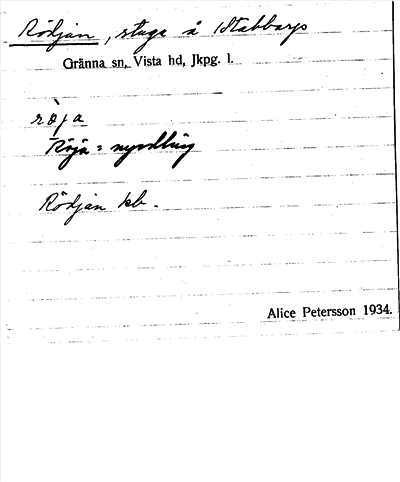 Rödjan, stuga å Stabbarp
Gränna sn, Vista hd, Jkpg. l.
rö̀ja
Röja = nyodling
Rödjan kb.
Alice Petersson 1934.